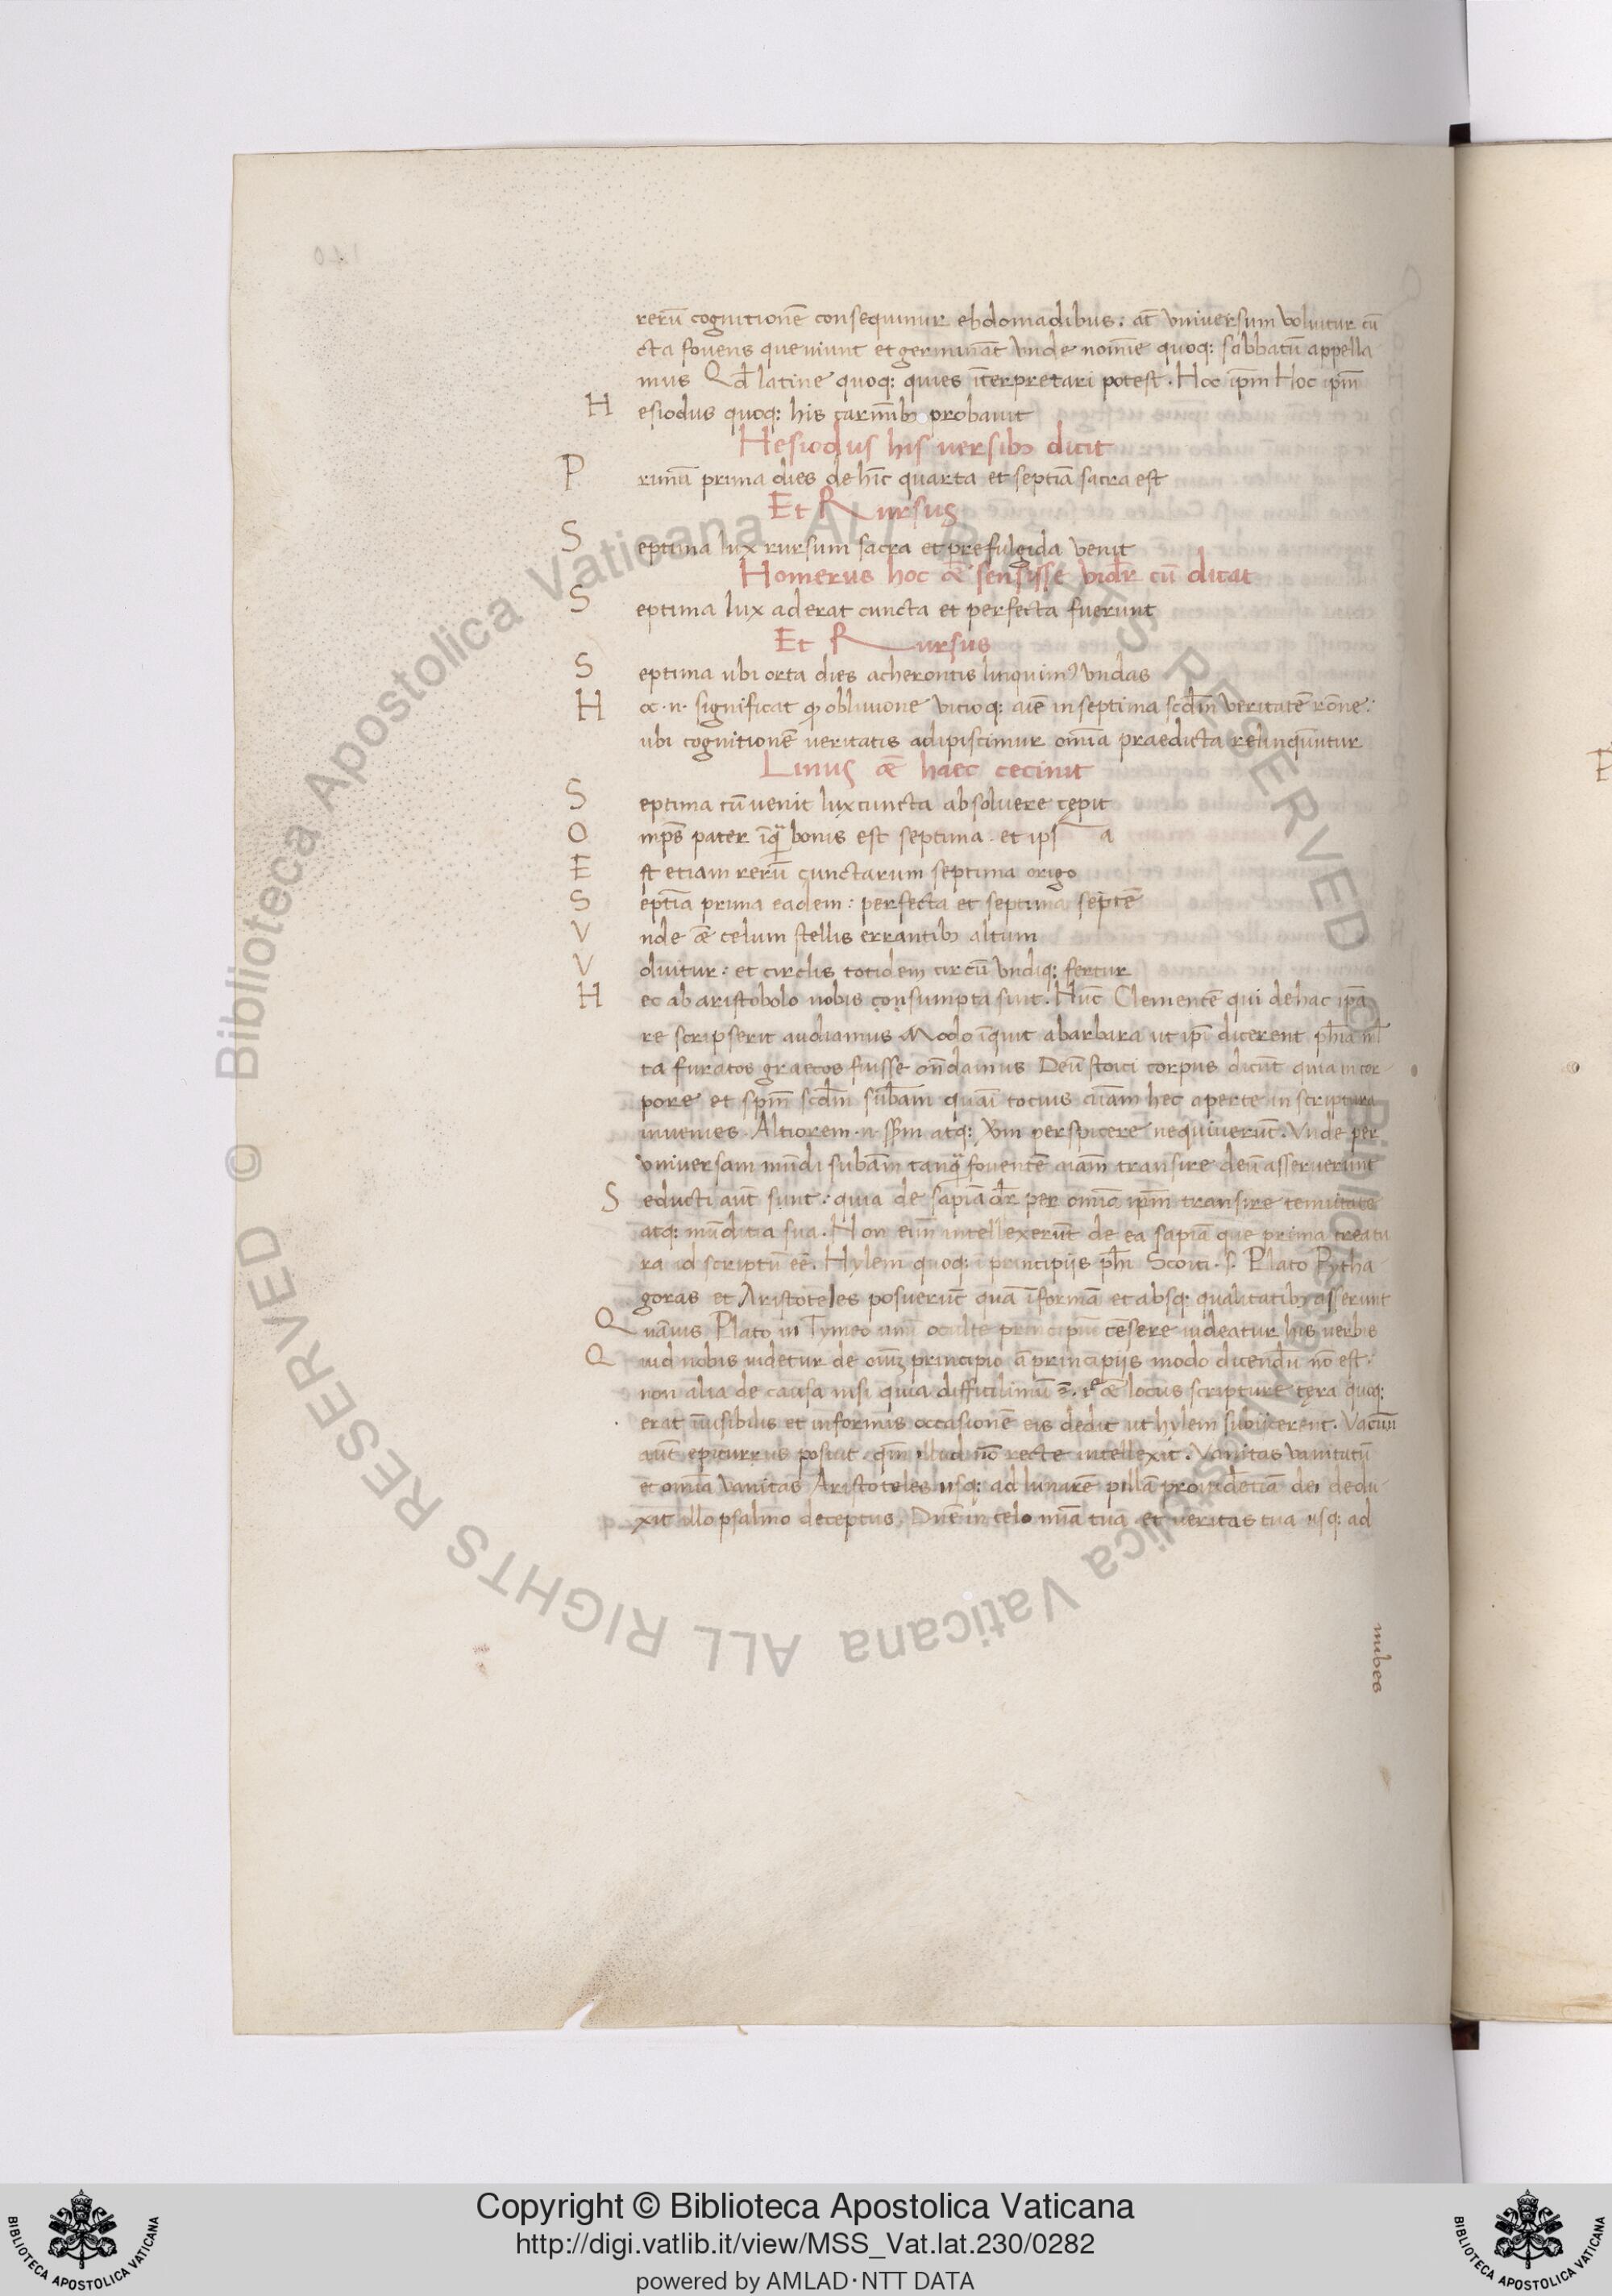 rerū cognitionē consequimur ebdomadibus: at̄ vniversum voluitur cū
cta fovens que viunt et germinānt vnde nomīe quoq: sabbatū appella
mus Qd̄ latine quoq: quies īterpretari potest. Hoc ip̄m Hoc ip̄m
Hesiodus quoq: his carmīb; probauit
Hesiodus his uersib; dicit
Primū prima dies de hīc quarta et septīa sacra est
Et Rursus
Septima lux rursum sacra et prefulgida venit
Homerus hoc ǣ sensisse vidēr cū dicat
Septima lux aderat cuncta et perfecta fuerunt
Et Rursus
Septima ubi orta dies acherontis linquim⁹ vndas
Hoc .n. significat ꝙ oblivione vitioq: aīe in septima scd̄m veritatē rōne:
ubi cognitionē ueritatis adipiscimur omīa praedicta relinquūtur
Linus ǣ haec cecinit
Septima cū uenit lux cuncta absoluere cępit
Omp̄s pater īq̄ bonis est septima. et ipsa
Est etiam rerū cunctarum septima origo
Septīa prima eadem: perfecta et septima septē
Vnde ǣ celum stellis errantib; altum
Voluitur: et circlis totidem circū vndiq: fertur
Hec ab aristobolo nobis consumpta sint. Hūc Clementē qui de hac ipā
re scripserit audiamus Modo īquit a barbara ut ipī dicerent ph̄ia ml̄
ta furatos graecos fuisse on̄damus Deū stoici corpus dicūt quia in cor
pore et sp̄m scd̄m sūbam quāi totius aīam hec aperte in scriptura
inuenies. Altiorem .n. atq: perspicere nequiuerūt. Vnde per
vniversam mūdi subām tanq̄ fouentē aīam transire deū asseruerunt
Seducti aūt sunt: quia de sapīa dr̄ per omīa ip̄m transire tenuitate
atq: mūditia sua. Non enīm intellexerūt de ea sapīa que prima creatu
ra id scriptū eē. Hylem quoq: ī principijs ph̄i Stoici .s. Plato Pytha
goras et Aristoteles posuerūt quā īformā et absq: qualitatib; asserunt
Quāuis Plato in Tymeo unū oculte principiū cēsere uideatur his verbis
Quid nobis uidetur de oīuȝ principio ā principijs modo dicendū nō est:
non alia de causa nisi quia difficilimū ē. ǣ locus scripture tęra quoq:
erat īuisibilis et informis occasionē eis dedit ut hylem subijcerent. Vacuū
aūt epicurrus posuit qm̄ illud nō recte intellexit: Vanitas vanitatū
et omīa vanitas Aristoteles usq: ad lunarē pillā prouidētiā dei dedu
xit illo psalmo deceptus. Dn̄e in celo mīa tua et ueritas tua usq: ad
nubes
Copyright © Biblioteca Apostolica Vaticana
http://digi.vatlib.it/view/MSS_Vat.lat.230/0282
powered by AMLAD·NTT DATA
© Biblioteca Apostolica Vaticana ALL RIGHTS RESERVED
© Biblioteca Apostolica Vaticana ALL RIGHTS RESERVED
BIBLIOTECA APOSTOLICA VATICANA
BIBLIOTECA APOSTOLICA VATICANA